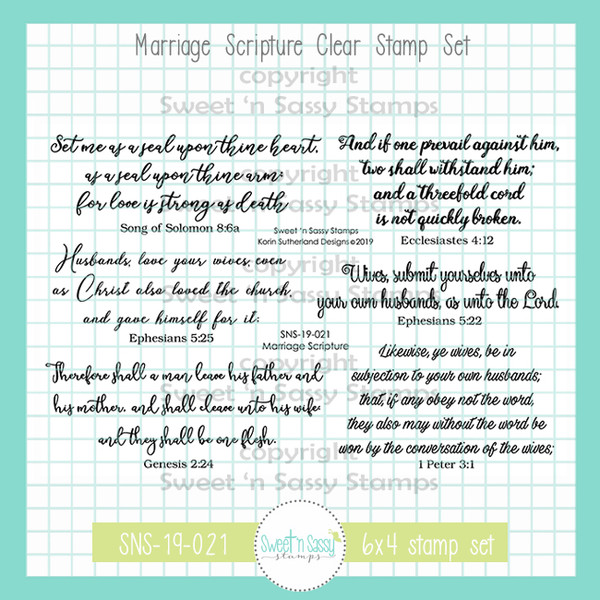 Marriage Scripture Clear Stamp Set
copyright
Sweet 'n Sassy Stamps
Set me as a seal upon thine heart,
as a seal upon thine arm:
for love is strong as death
Song of Solomon 8:6a
And if one prevail against him,
two shall withstand him;
and a threefold cord
is not quickly broken.
Ecclesiastes 4:12
copyright
Sweet 'n Sassy Stamps
Sweet 'n Sassy Stamps
Korin Sutherland Designs ©2019
Husbands, love your wives, even
as Christ also loved the church,
and gave himself for it;
Ephesians 5:25
Wives, submit yourselves unto
your own husbands, as unto the Lord.
Ephesians 5:22
copyright
Sweet 'n Sassy Stamps
SNS-19-021
Marriage Scripture
Therefore shall a man leave his father and
his mother, and shall cleave unto his wife:
and they shall be one flesh.
Genesis 2:24
Likewise, ye wives, be in
subjection to your own husbands;
that, if any obey not the word,
they also may without the word be
won by the conversation of the wives;
1 Peter 3:1
copyright
Sweet 'n Sassy Stamps
copyright
Sweet 'n Sassy Stamps
SNS-19-021
Sweet 'n Sassy
stamps
6x4 stamp set